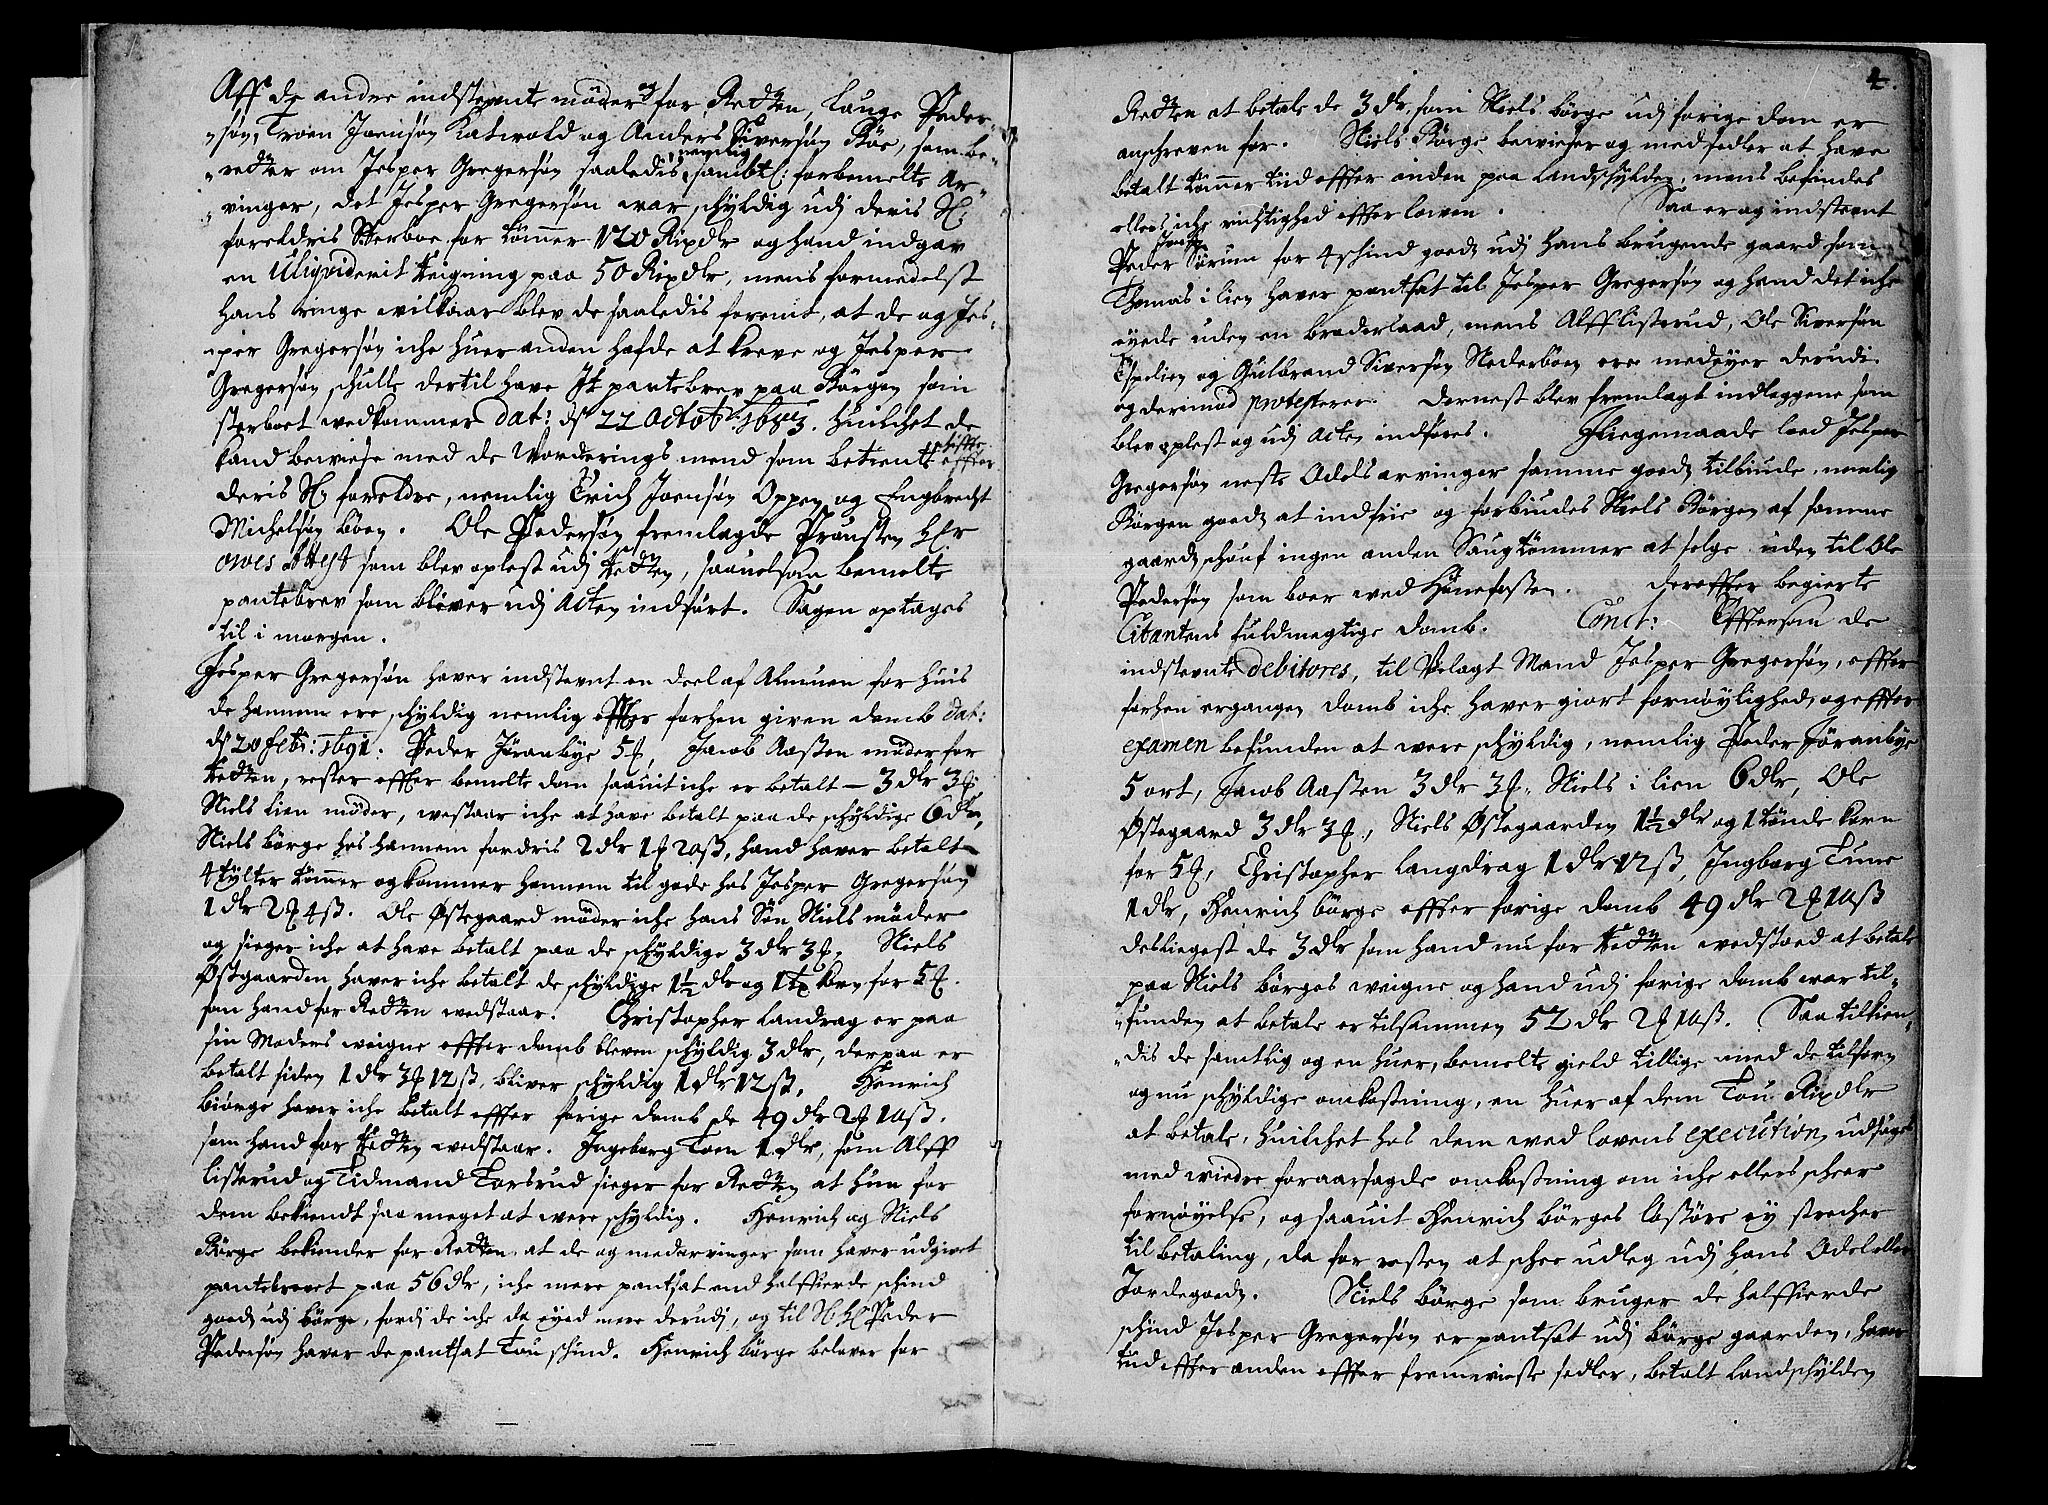 Aff de andre indstevnte møder og for Retten, Lauge Peder-
søn, Troen Joensøn Katvold og Anders Siversøn Bøe, som be-
retter om Jesper Gregersøn saaledis nemlig sambtl: forbemelte Ar-
vinger, det Jesper Gregersøn war schyldig udj deris Sl:
foreldris Sterboe for tømmer 120 Rixdlr og hand indgav
en Uliqviderit Reigning paa 50 Rixdlr, mens formedelst
hans ringe wilkaar blev de saaledis forenit, at de og Jes-
per Gregersøn iche huer anden hafde at kreve og Jesper
Gregersøn schulle dertil have It pantebrev paa Børgen som
sterboet wedkommer dat: ds 22 Octobr: 1683. huilchet de
kand bewiese med de Worderings mend som betiente schifftet effter
deris Sl: foreldre, nemlig Erich Joensøn Oppen og Engbrecht
Michelsøn Bøen. Ole Pedersøn fremlagde Prousten Hr
Owes Attest som blev oplest udj Retten, saauelsom bemelte
pantebrev som bliver udj Acten indført. Sagen optages
til i morgen.
Jesper Gregersøn haver indstevnt en deel af Almuen for huis
de hannem ere schyldig nemlig effter forhen given domb dat:
ds 20 febr: 1691. Peder Jøranbye 5 ort, Jacob Aasten møder for
Retten, rester effter bemelte dom saauit iche er betalt – 3 dlr 3 ort
Niels Lien møder, westaar iche at have betalt paa de schyldige 6 dlr,
Niels Børge hos hannem fordris 2 dlr 1 ort 20 ß, hand haver betalt
4 tylter tømmer og kommer hannem til gode hos Jesper Gregersøn
1 dlr 2 ort 4 ß. Ole Østegaard møder iche hans Søn Niels møder
og sieger iche at have betalt paa de schyldige 3 dlr 3 ort, Niels
Østgaarden haver iche betalt de schyldige 1½ dlr og 1 tx korn for 5 ort.
som hand for Retten wedstaar. Christopher Landrag er paa
sin Moders weigne effter domb bleven schyldig 3 dlr, derpaa er
betalt siden 1 dlr 3 ort 12 ß, bliver schyldig 1 dlr 12 ß, Henrich
Biørge haver iche betalt effter forige domb de 49 dlr 2 ort 10 ß.
som hand for Retten wedstaar. Ingeborg Toen 1 dlr, som Alff
Listerud og Tidmand Torsrud sieger for Retten at hun for
dem bekiendt saa meget at were schyldig. Henrich og Niels
Børge bekiender for Retten at de og medarvinger som haver udgivet
pantebrevet paa 56 dlr, iche mere pantsat end halffierde schind
goedz udj Børge, fordj de iche da eyed mere derudj, og til Sl: Hr Peder
Pedersøn haver de pantsat Tou schind. Henrich Børge belover for
4.
Retten at betale de 3 dlr som Niels Børge udj forige dom er
anschreven for. Niels Børge bewieser og med sedler at have
betalt tømmer tiid effter anden paa Landschylden, mens befindes
ellers iche rictighed effter lowen. Saa er og indstevnt
Peder Sørum for 4 schind goedz udj hans brugende gaard som
Thomas i lien haver pantsat til Jesper Gregersøn og hand det iche
eyede uden en broderlaad, mens Alff Listerud, Ole Siversøn
Espelien og Gulbrand Siversøn Nederbøen ere medeyer derudi
og derimod protesterer. Dernest blev fremlagt indleggene som
blev oplest og udj Acten indføres. Iliegemaade loed Jesper
Gregersøn neste Odels arvinger samme goedz tilbiude, nemlig
Børgen goedz at indfrie og forbiudes Niels Børgen af samme
gaardz schouf ingen anden Saugtømmer at selge uden til Ole
Pedersøn som boer wed Hønefossen. dereffter begierte
Citantens fuldmegtige domb. Conct: Effterson de
indstevnte debitores, til Welagt Mand Jesper Gregersøn, effter
forhen ergangen domb iche haver giort fornøylighed, og effter
examen befunden at were schyldig, nemlig Peder Jøranbye
5 ort, Jacob Aasten 3 dlr 3 ort, Niels i lien 6 dlr, Ole
Østegaard 3 dlr 3 ort, Niels Østegaarden 1½ dlr og 1 tønde korn
for 5 ort, Christopher Langdrag 1 dlr 12 ß, Ingborg Tune
1 dlr, Henrich Børge effter forige domb 49 dlr 2 ort 10 ß
desliegest de 3 dlr som hand nu for Retten wedstoed at betale
paa Niels Børges weigne og hand udj forige domb war til-
funden at betale er tilsammen 52 dlr 2 ort 10 ß. Saa tilkien-
dis de samtlig og en huer, bemelte gield tillige med de tilforn
og nu schyldige omkostning, en huer af dem Tou Rixdlr
at betale, huilchet hos dem wed lovens execution udsøges
med widre foraarsagde omkostning om iche ellers scheer
fornøyelse, og saauit Henrich Børges løsøre ey strecher
til betaling, da for resten at schee udleg udj hans Odel eller
Jordegoedz. Niels Børge som bruger de halffierde
schind Jesper Gregersøn er pantsat udj Børge gaarden, haver
tiid effter anden effter fremwieste sedler, betalt Landschylden